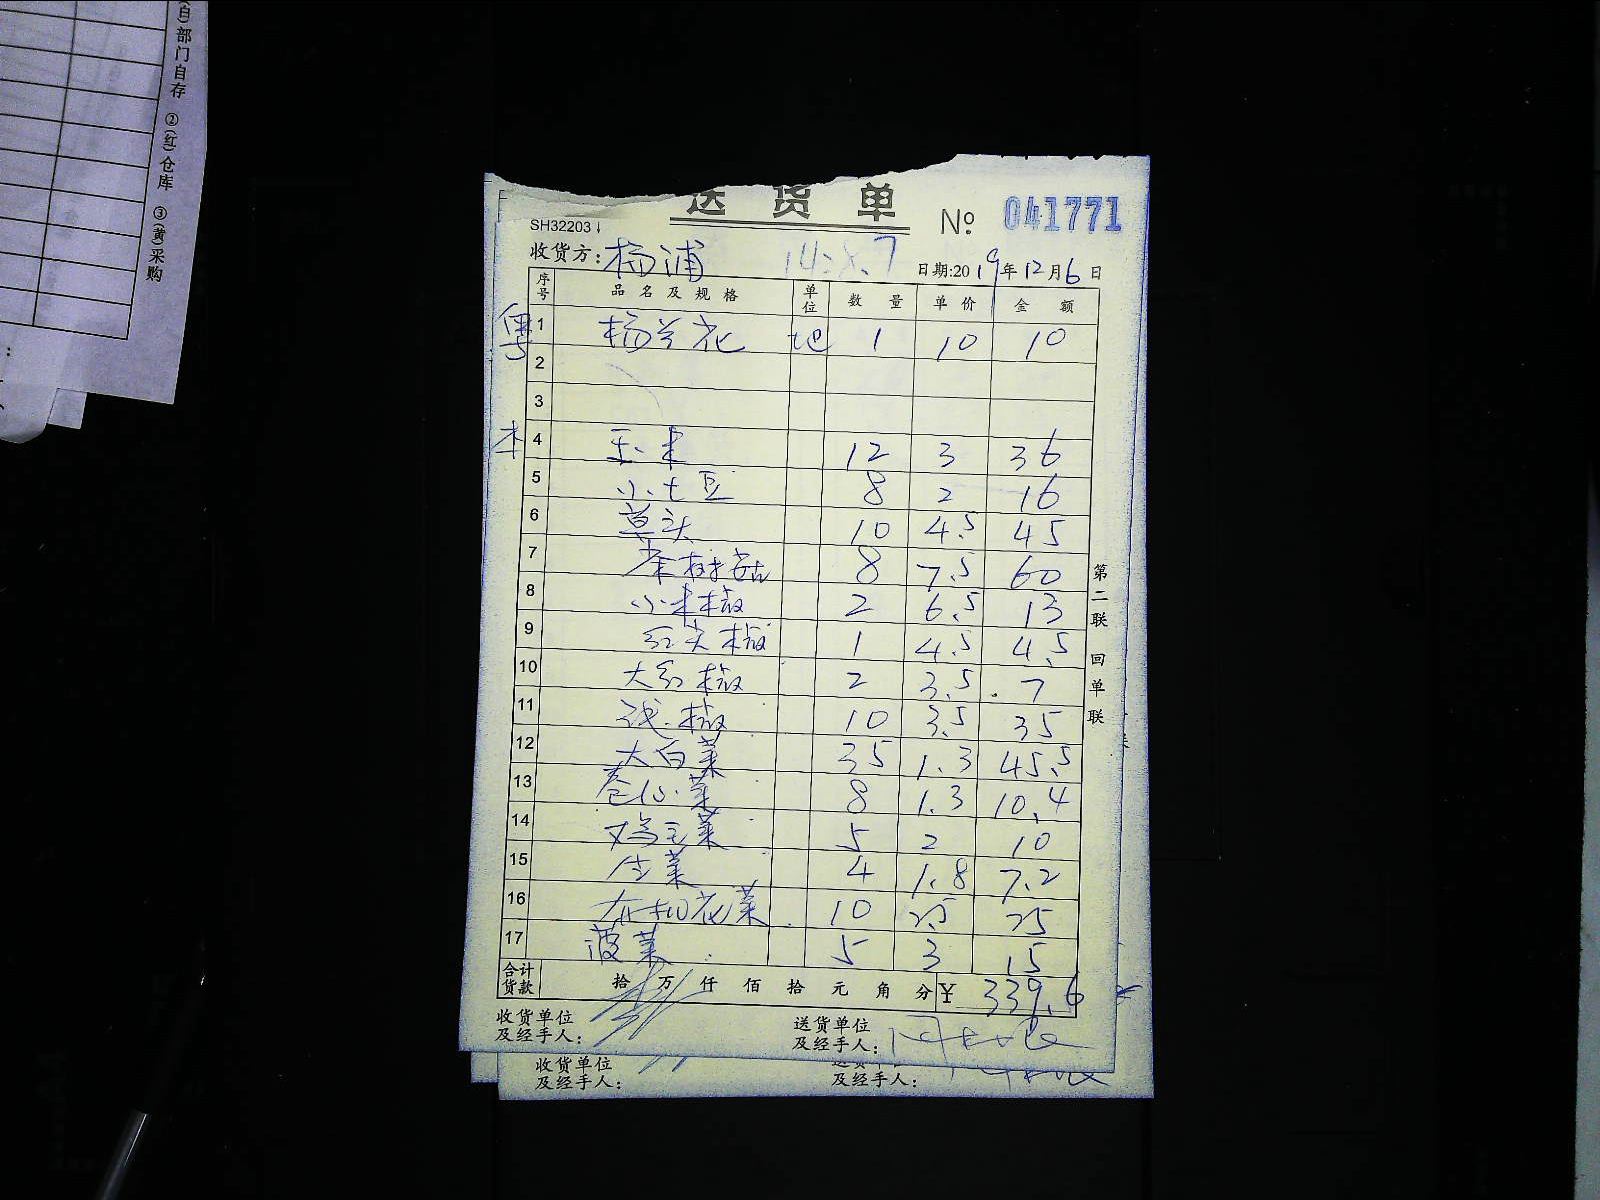 (白)部门自存 ②(红)仓库 ③(黄)采购
送货单
SH32203
No 041771
收货方:杨浦
日期:2019年12月6日
序号 品名及规格 单位 数量 单价 金额
粤 1 杨兰花 1 10 10
2
3
本 4 玉米 12 3 36
5 小土豆 8 2 16
6 草头 10 4.5 45
7 茶树菇 8 7.5 60
8 小米椒 2 6.5 13
9 红尖椒 1 4.5 4.5
10 大红椒 2 3.5 7
11 线椒 10 3.5 35
12 大白菜 35 1.3 45.5
13 卷心菜 8 1.3 10.4
14 鸡毛菜 5 2 10
15 生菜 4 1.8 7.2
16 有机花菜 10 2.5 25
17 菠菜 5 3 15
合计货款 拾 万 仟 佰 拾 元 角 分 ¥ 339.6
收货单位及经手人:
送货单位及经手人:
第二联 回单联
收货单位及经手人:
及经手人: